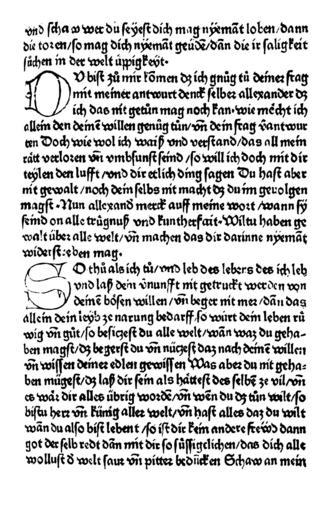 vnd schaw wer du seyest dich mag nyemāt loben/dann
die toren/so mag dich nyemāt geüdē/dañ die ir saligkeit
sůchen in der welt üppigkeyt.
DV bist zů mir kōmen dz ich gnůg tů deiner frag
mit meiner antwurt denck selber alexander dz
ich das nit getůn mag noch kan. wie mēcht ich
allein den deinē willen genůg tůn/vñ dein frag verantwur
ten Doch wie wol ich waiß vnd verstand/das all mein
rätt verloren vñ vmbsunst seind/so will ich doch mit dir
teylen den lufft/vnd dir etlich ding sagen Du hast aber
nit gewalt/noch dein selbs nit macht dz du im geuolgen
magst. Nun allexand merck auff meine wort/wann sy
seind on alle trügnuß vnd kuntherfait. Wiltu haben ge
walt über alle welt/vñ machen das dir darinne nyemāt
widersteen mag.
SO thů als ich tů/vnd leb des lebers des ich leb
vnd laß dein vnunfft nit getruckt werden von
deinē bösen willen/vñ beger nit mer/dañ das
allein dein leyb ze narung bedarff. so würt dein leben rů
wig vñ gůt/so besiczest du alle welt/wañ waz du geha-
ben magst/dz begerst du vñ nüczest daz nach deinē willen
vñ wissen deiner edlen gewissen Was aber du nit geha-
ben mügest/dz laß dir sein als hättest des selbē ze vil/vñ
es wär dir alles übrig wordē/vñ wen du dz tůn wilt/so
bistu herr vñ künig aller welt/vñ hast alles daz du wilt
wañ du also bist lebent/so ist dir kein andere frewd dann
got der selb redt dañ mit dir so süssigclichen/das dich alle
wollust d welt saur vñ pitter beducken Schaw an mein